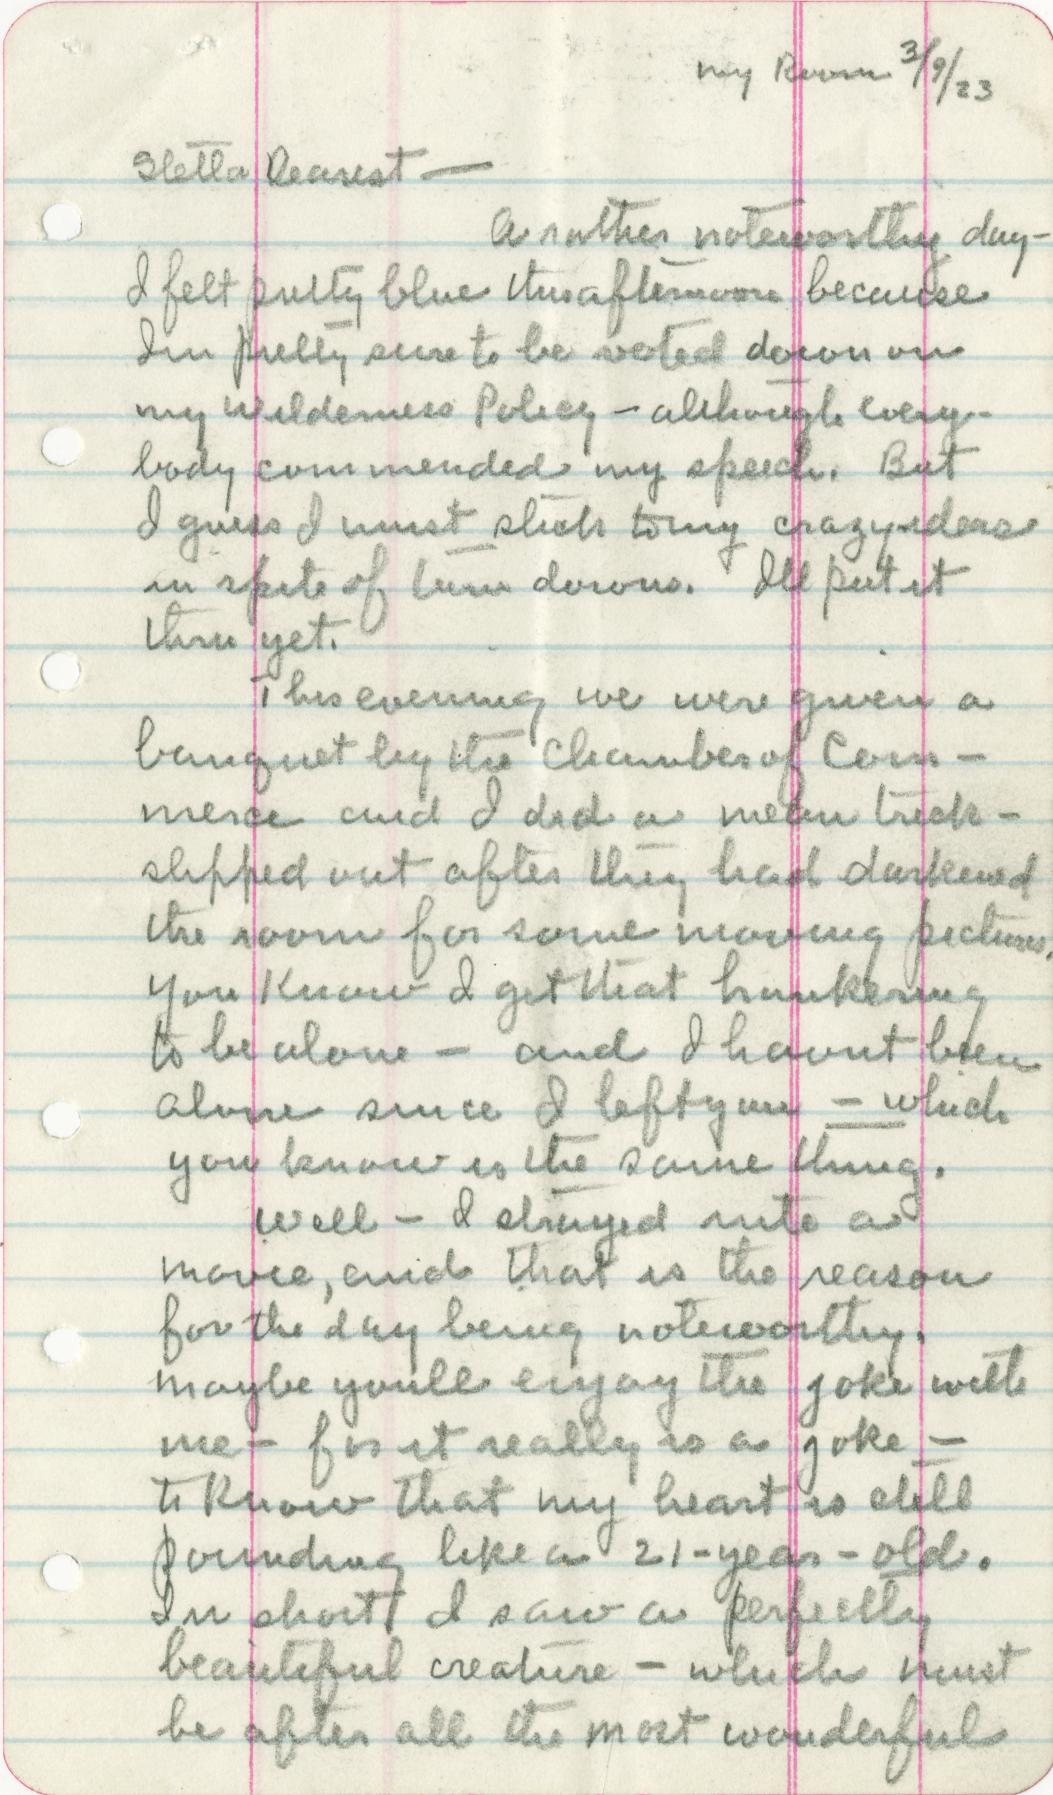 my Room 3/9/23
Stella Dearest —
A rather noteworthy day -
I felt pretty blue this afternoon because
Im pretty sure to be voted down on
my Wilderness Policy - although every-
body commended my speech. But
I guess I must stick to my crazy ideas
in spite of turn downs. Ill put it
thru yet.
This evening we were given a
banquet by the Chamber of Com-
merce and I did a mean trick -
slipped out after they had darkened
the room for some moving pictures.
You Know I get that hankering
to be alone - and I havnt been
alone since I left you - which
you know is the same thing.
Well - I strayed into a
movie, and that is the reason
for the day being noteworthy.
Maybe youll enjoy the joke with
me - for it really is a joke -
to Know that my heart is still
pounding like a 21-year-old.
In short I saw a perfectly
beautiful creature - which must
be after all the most wonderful